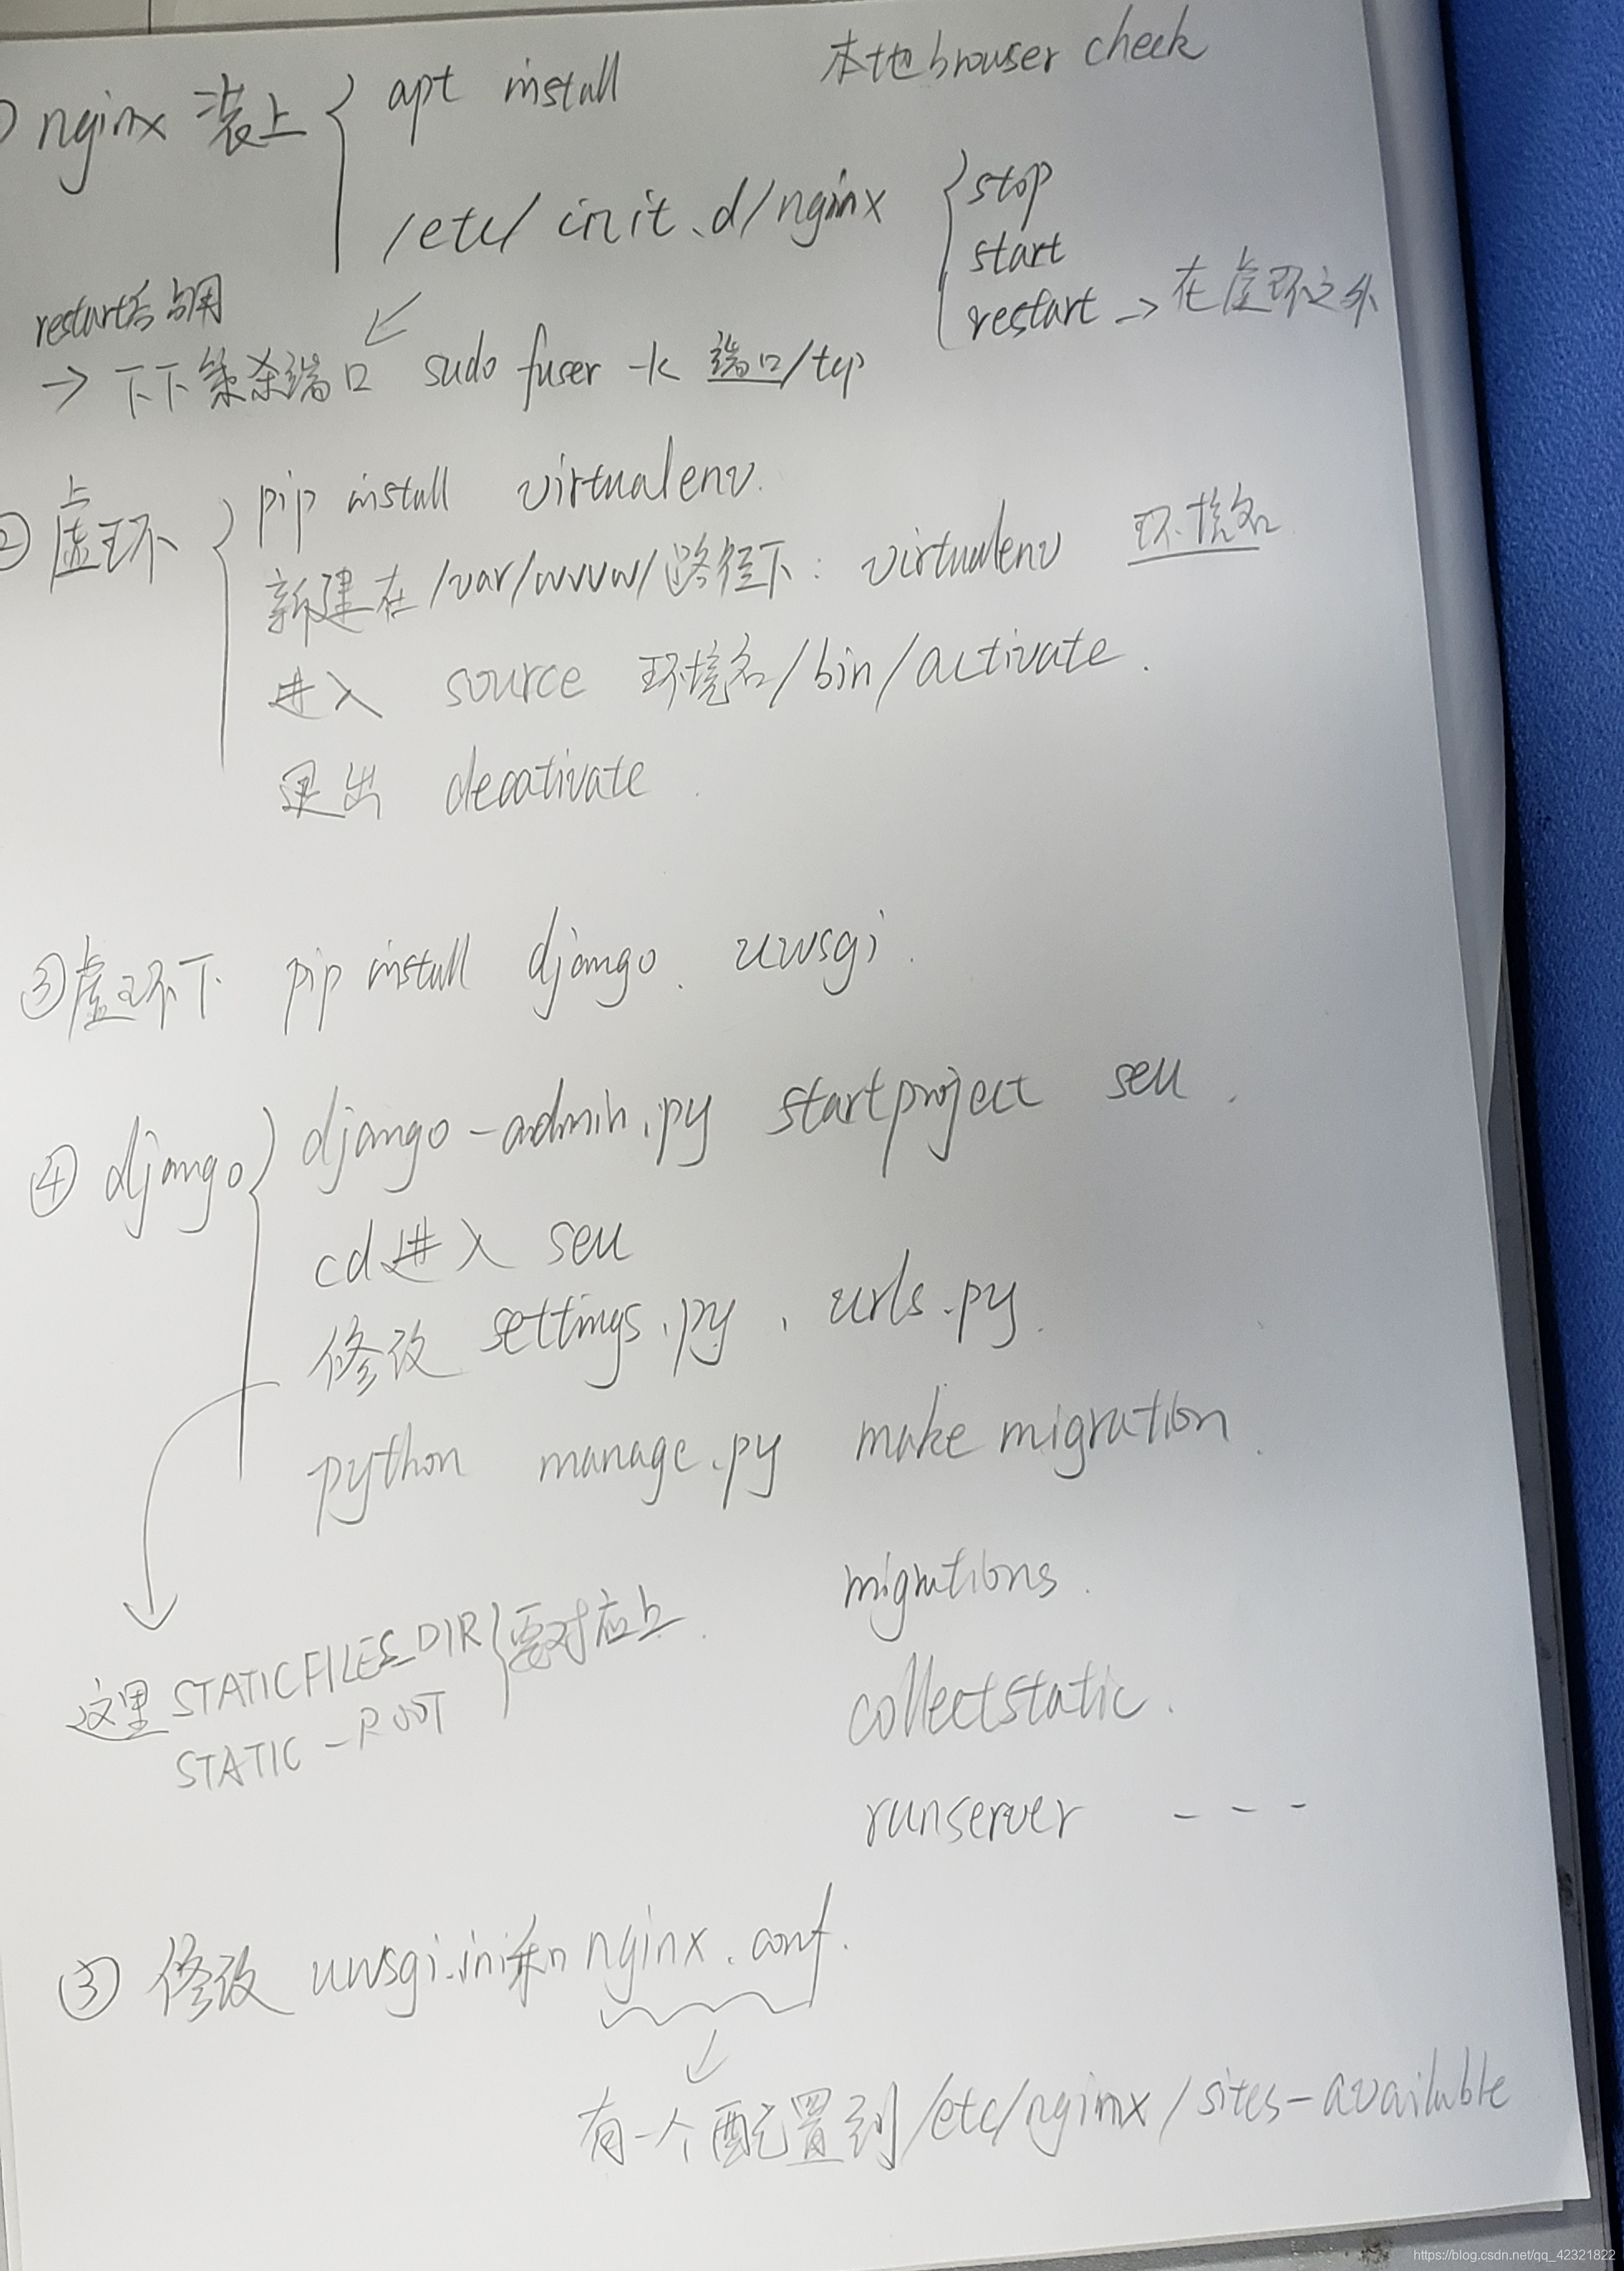 ① nginx 装上 { apt install 本地browser check
/etc/init.d/nginx { stop
start
restart → 在虚环之外
restart后占用
→ 下下策杀端口 sudo fuser -k 端口/tcp
② 虚环 { pip install virtualenv.
新建在/var/www/路径下: virtualenv 环境名
进入 source 环境名/bin/activate.
退出 deactivate.
③虚环下 pip install django、uwsgi.
④ django { django-admin.py startproject seu.
cd进入 seu
修改 settings.py、urls.py.
python manage.py make migration.
migrations.
这里 STATICFILES_DIR } 要对应上.
STATIC-ROOT
collectstatic.
runserver ---
⑤ 修改 uwsgi.ini和nginx.conf.
有一个配置到/etc/nginx/sites-available
https://blog.csdn.net/qq_42321822